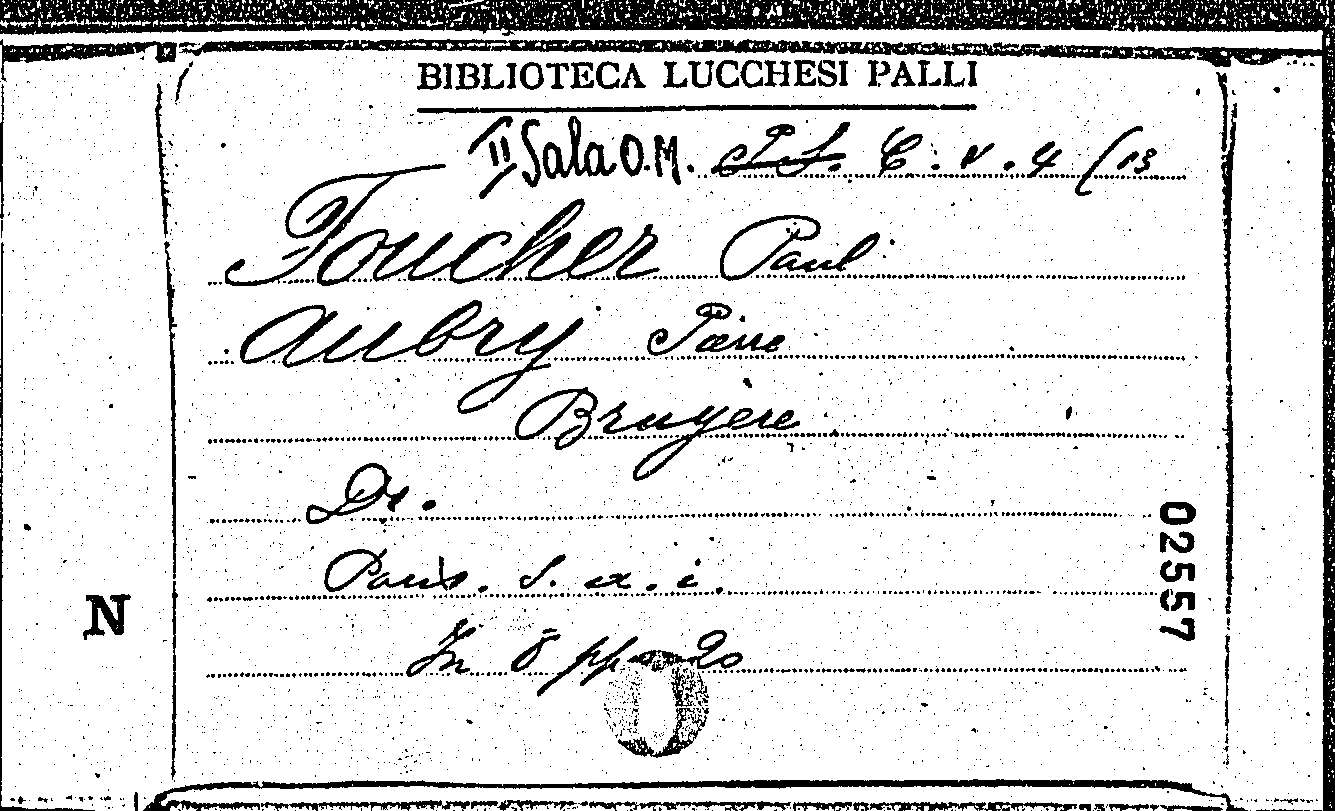 BIBLIOTECA LUCCHESI PALLI
II Sala O.M. P.S. C. V. 4 (13
Foucher Paul
Aubry
Bruyère
Dr.
Paris. S. a. i.
In 8 pp. 20
02557
N